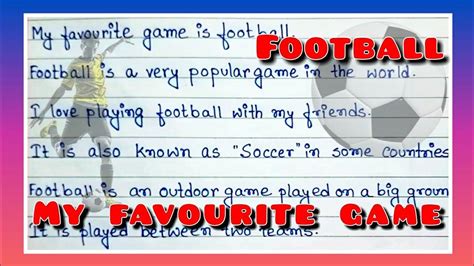 My favourite game is football.
FOOTBALL
Football is a very popular game in the world.
I love playing football with my friends.
It is also known as "Soccer" in some countries
Football is an outdoor game played on a big groun
MY FAVOURITE GAME
It is played between two teams.